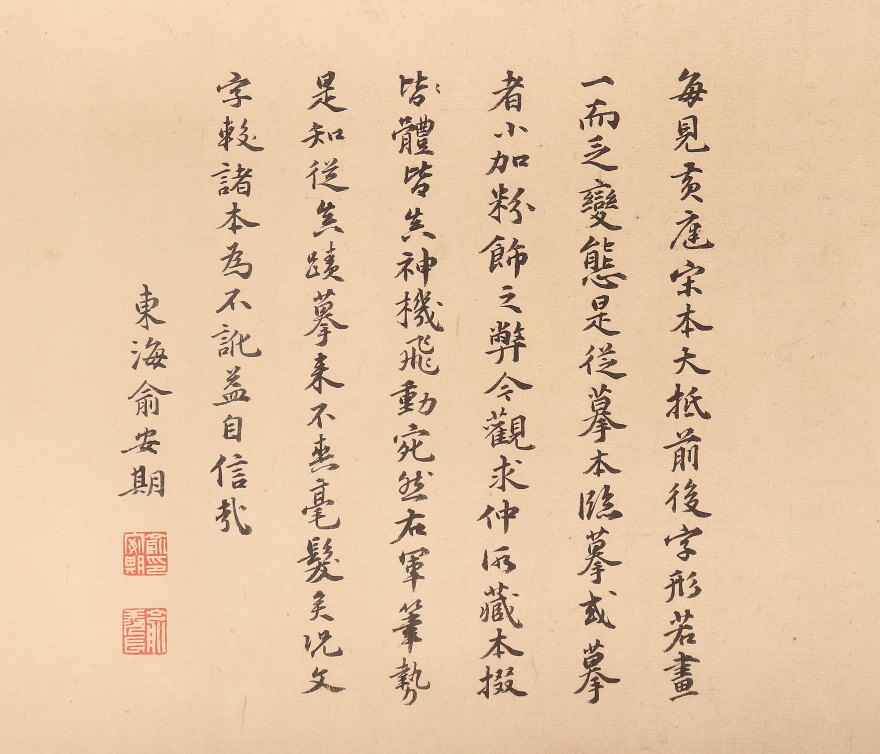 每見黄庭宋本大抵前後字形若畫
一而乏變態是從摹本臨摹或摹
者小加粉飾之弊今觀求仲所藏本掇
皆〻體皆真神機飛動宛然右軍筆勢
是知從真蹟摹来不爽毫髮矣况文
字較諸本為不訛益自信哉
東海俞安期
俞安期印